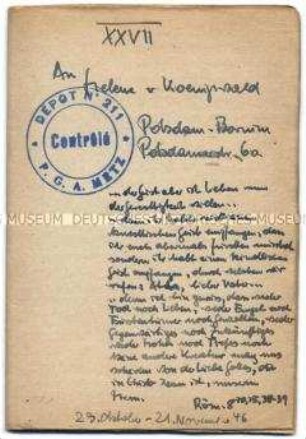 XXVII
An Helene v Koenigswald
DEPOT No 211
Contrôlé
P. G. A. METZ
Potsdam-Bornim
Potsdamerstr. 6a
... der Geist aber ist Leben um
der Gerechtigkeit willen ...
... denn ihr habt nicht einen
knechtischen Geist empfangen, dass
ihr euch abermals fürchten müsstet
sondern ihr habt einen kindlichen
Geist empfangen, durch welchen wir
rufen: Abba, lieber Vater ...
... denn ich bin gewiss, dass weder
Tod noch Leben, weder Engel noch
Fürstentümer noch Gewalten, weder
Gegenwärtiges noch Zukünftiges
weder Hohes noch Tiefes noch
keine andere Kreatur mag uns
scheiden von der Liebe Gottes, die
in Christo Jesu ist, unserm
Herrn.
Röm. 8 10, 15, 38-39
23. Oktober - 21. November 46